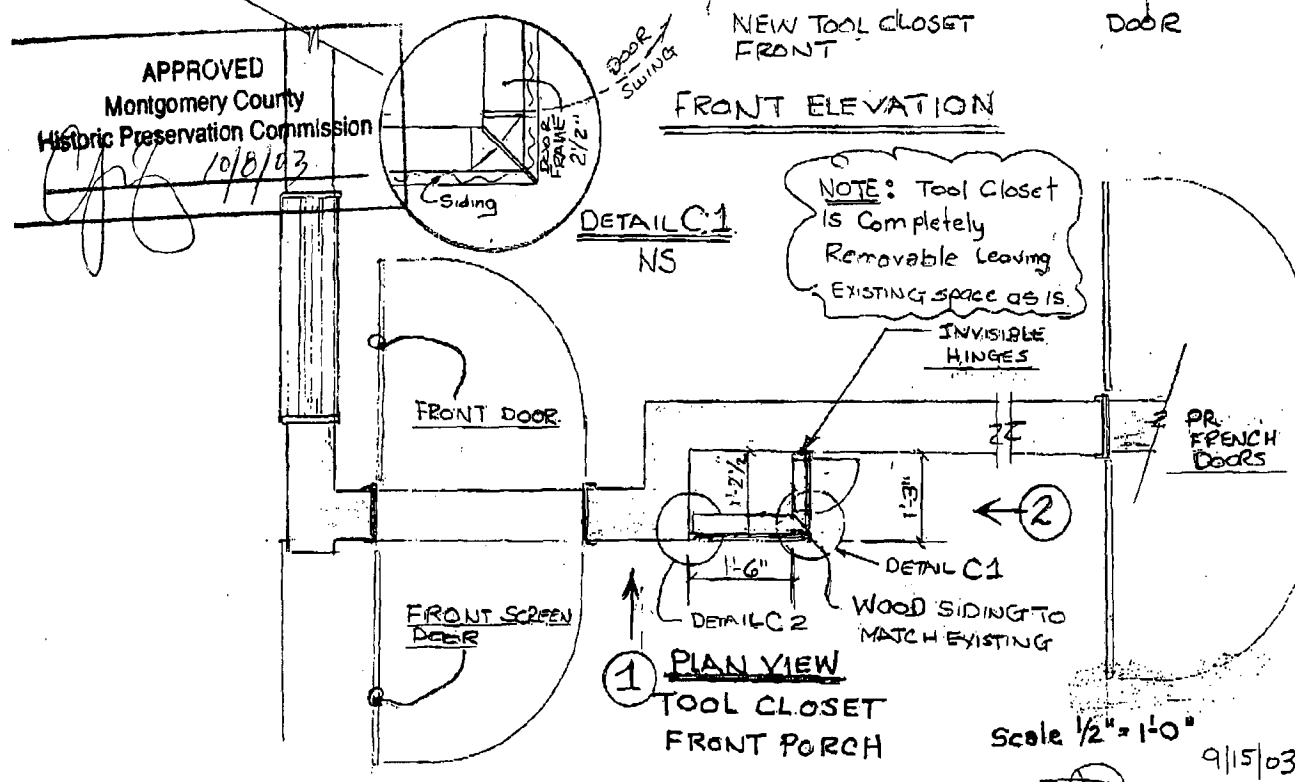 NEW TOOL CLOSET
FRONT
DOOR
FRONT ELEVATION
APPROVED
Montgomery County
Historic Preservation Commission
10/8/03
DOOR
SWING
DOOR
FRAME
2 1/2"
Siding
DETAIL C.1
NS
NOTE: Tool Closet
is Completely
Removable Leaving
EXISTING space as is
INVISIBLE
HINGES
FRONT DOOR
PR.
FRENCH
DOORS
1'-2 1/2
1'-3"
2
1'-6"
DETAIL C1
DETAIL C2
WOOD SIDING TO
MATCH EXISTING
FRONT SCREEN
DOOR
1
PLAN VIEW
TOOL CLOSET
FRONT PORCH
Scale 1/2" = 1'-0"
9/15/03